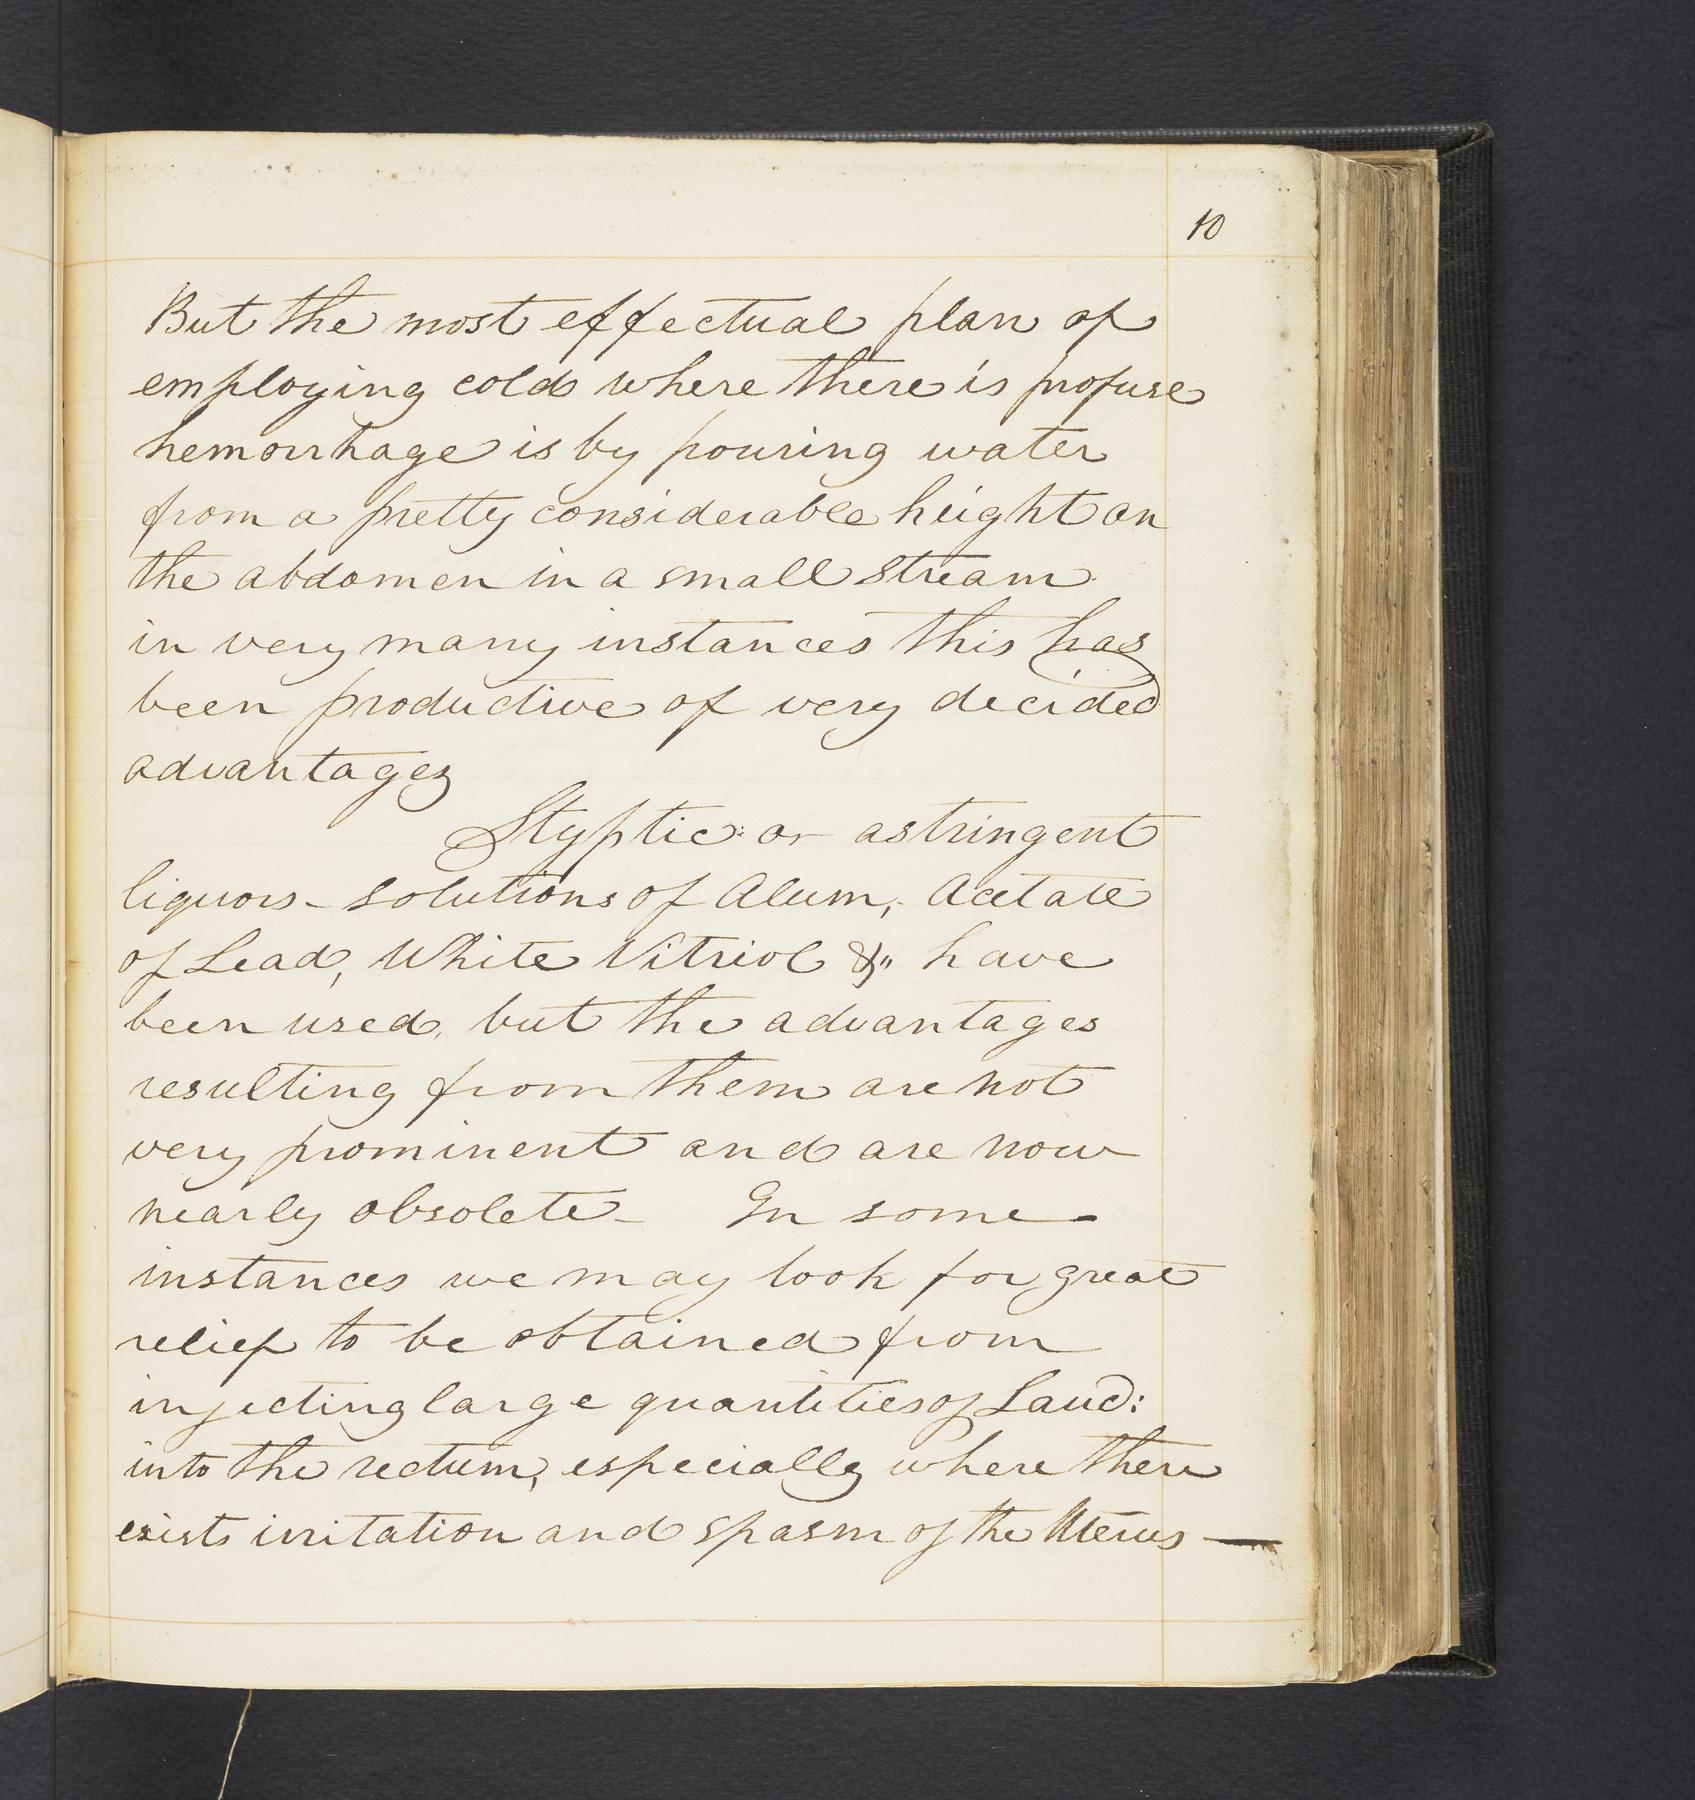 10
But the most effectual plan of
employing cold where there is profuse
hemorrhage is by pouring water
from a pretty considerable height on
the abdomen in a small stream
in very many instances this has
been productive of very decided
advantages
Styptic or astringent
liquors - solutions of Alum, Acetate
of Lead, White Vitriol &c" have
been used, but the advantages
resulting from them are not
very prominent and are now
nearly obsolete - In some
instances we may look for great
relief to be obtained from
injecting large quantities of Laud:
into the rectum, especially where there
exists irritation and spasm of the Uterus —